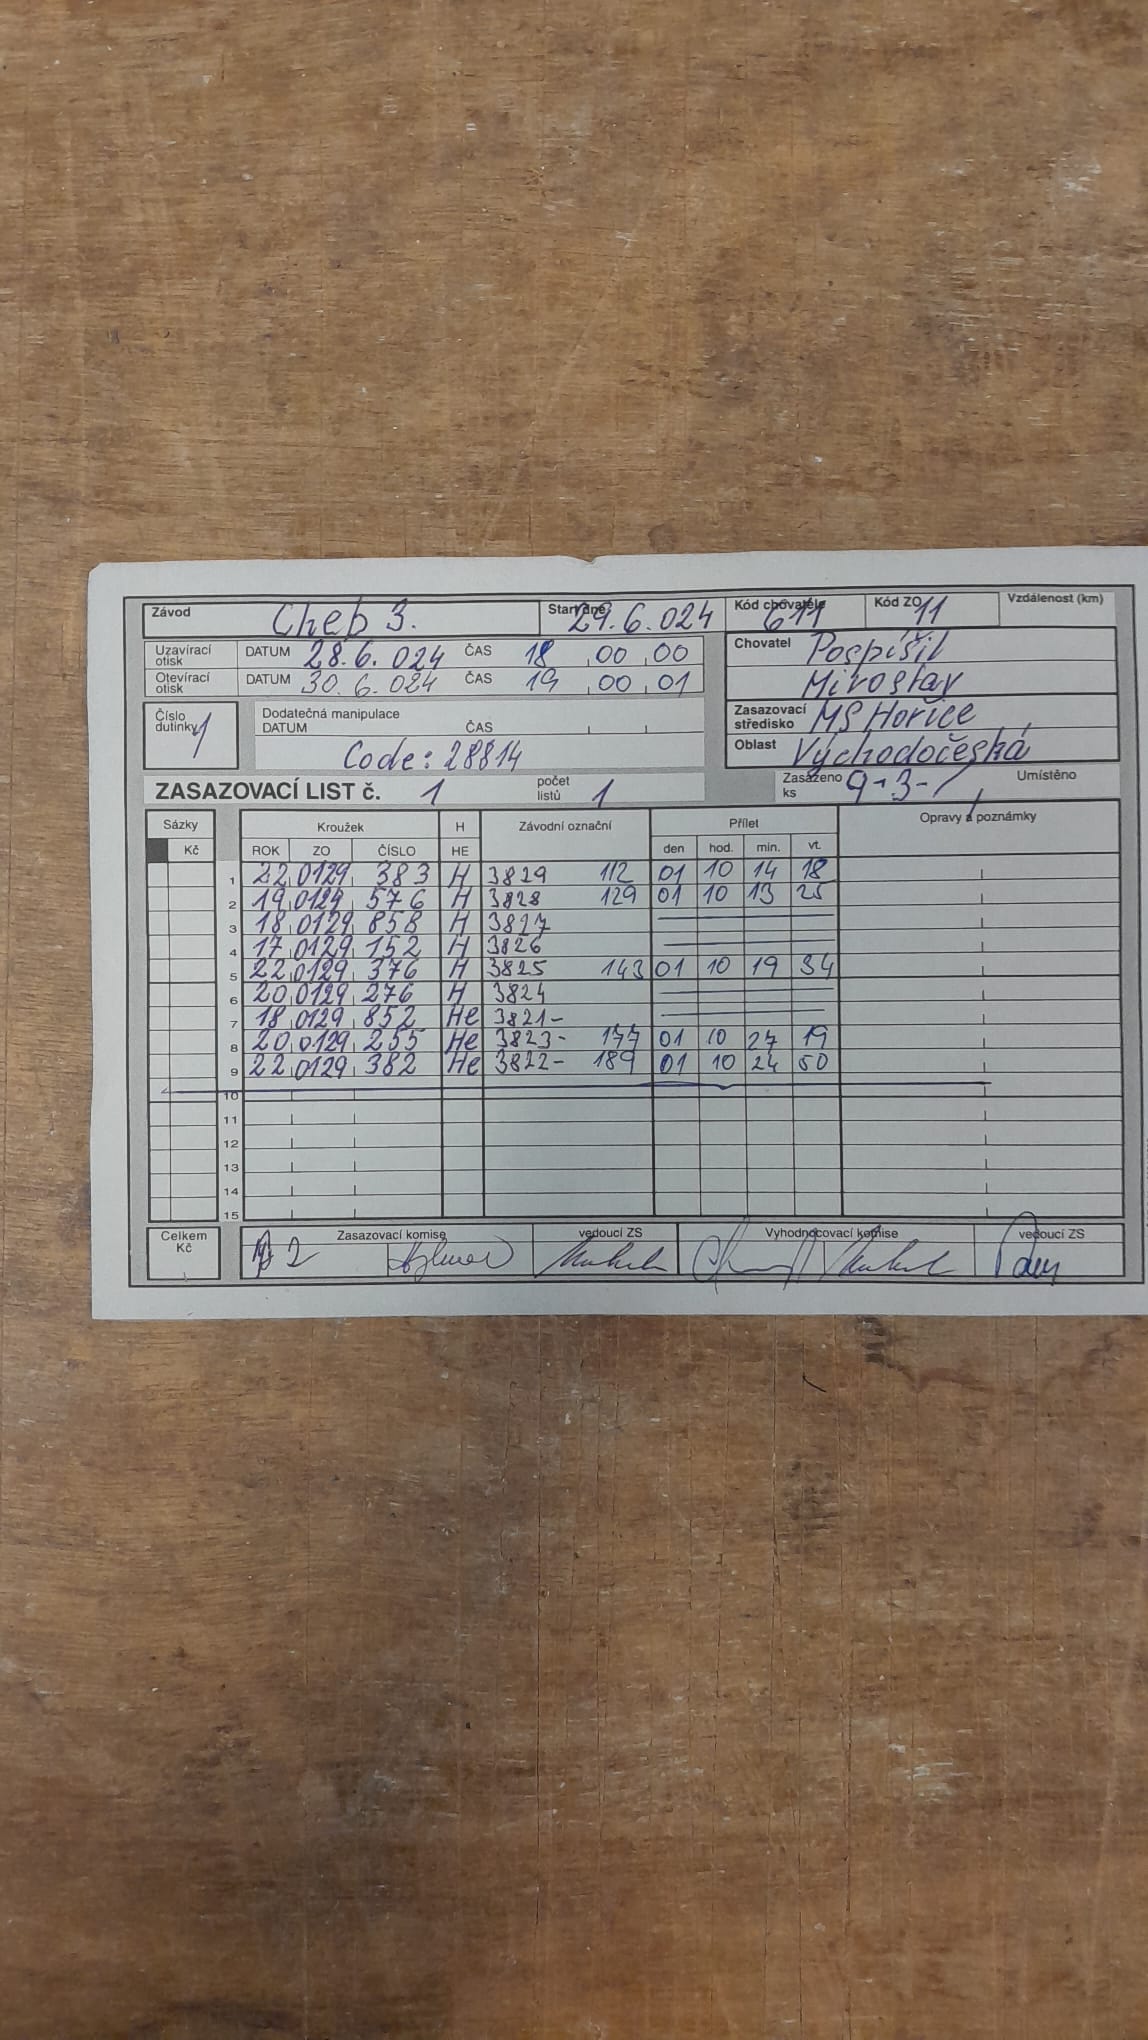 Závod Cheb 3. Start dne 29.6.024 Kód chovatele 611 Kód ZO 11 Vzdálenost (km)
Uzavírací otisk DATUM 28.6.024 ČAS 18 00 00
Otevírací otisk DATUM 30.6.024 ČAS 19 00 01
Chovatel Pospíšil
Miroslav
Číslo dutinky 1
Dodatečná manipulace
DATUM ČAS
Code: 28814
Zasazovací středisko MS Hořice
Oblast Východočeská
ZASAZOVACÍ LIST č. 1 počet listů 1
Zasazeno ks 9-3- Umístěno
Sázky Kroužek H Závodní označní Přílet Opravy a poznámky
Kč ROK ZO ČÍSLO HE den hod. min. vt.
1 22 0129 383 H 3829 112 01 10 14 18
2 19 0129 576 H 3828 129 01 10 13 25
3 18 0129 858 H 3827
4 17 0129 152 H 3826
5 22 0129 376 H 3825 143 01 10 19 34
6 20 0129 276 H 3824
7 18 0129 852 He 3821-
8 20 0129 255 He 3823- 177 01 10 27 19
9 22 0129 382 He 3822- 189 01 10 24 50
10
11
12
13
14
15
Celkem Kč Zasazovací komise vedoucí ZS Vyhodnocovací komise vedoucí ZS